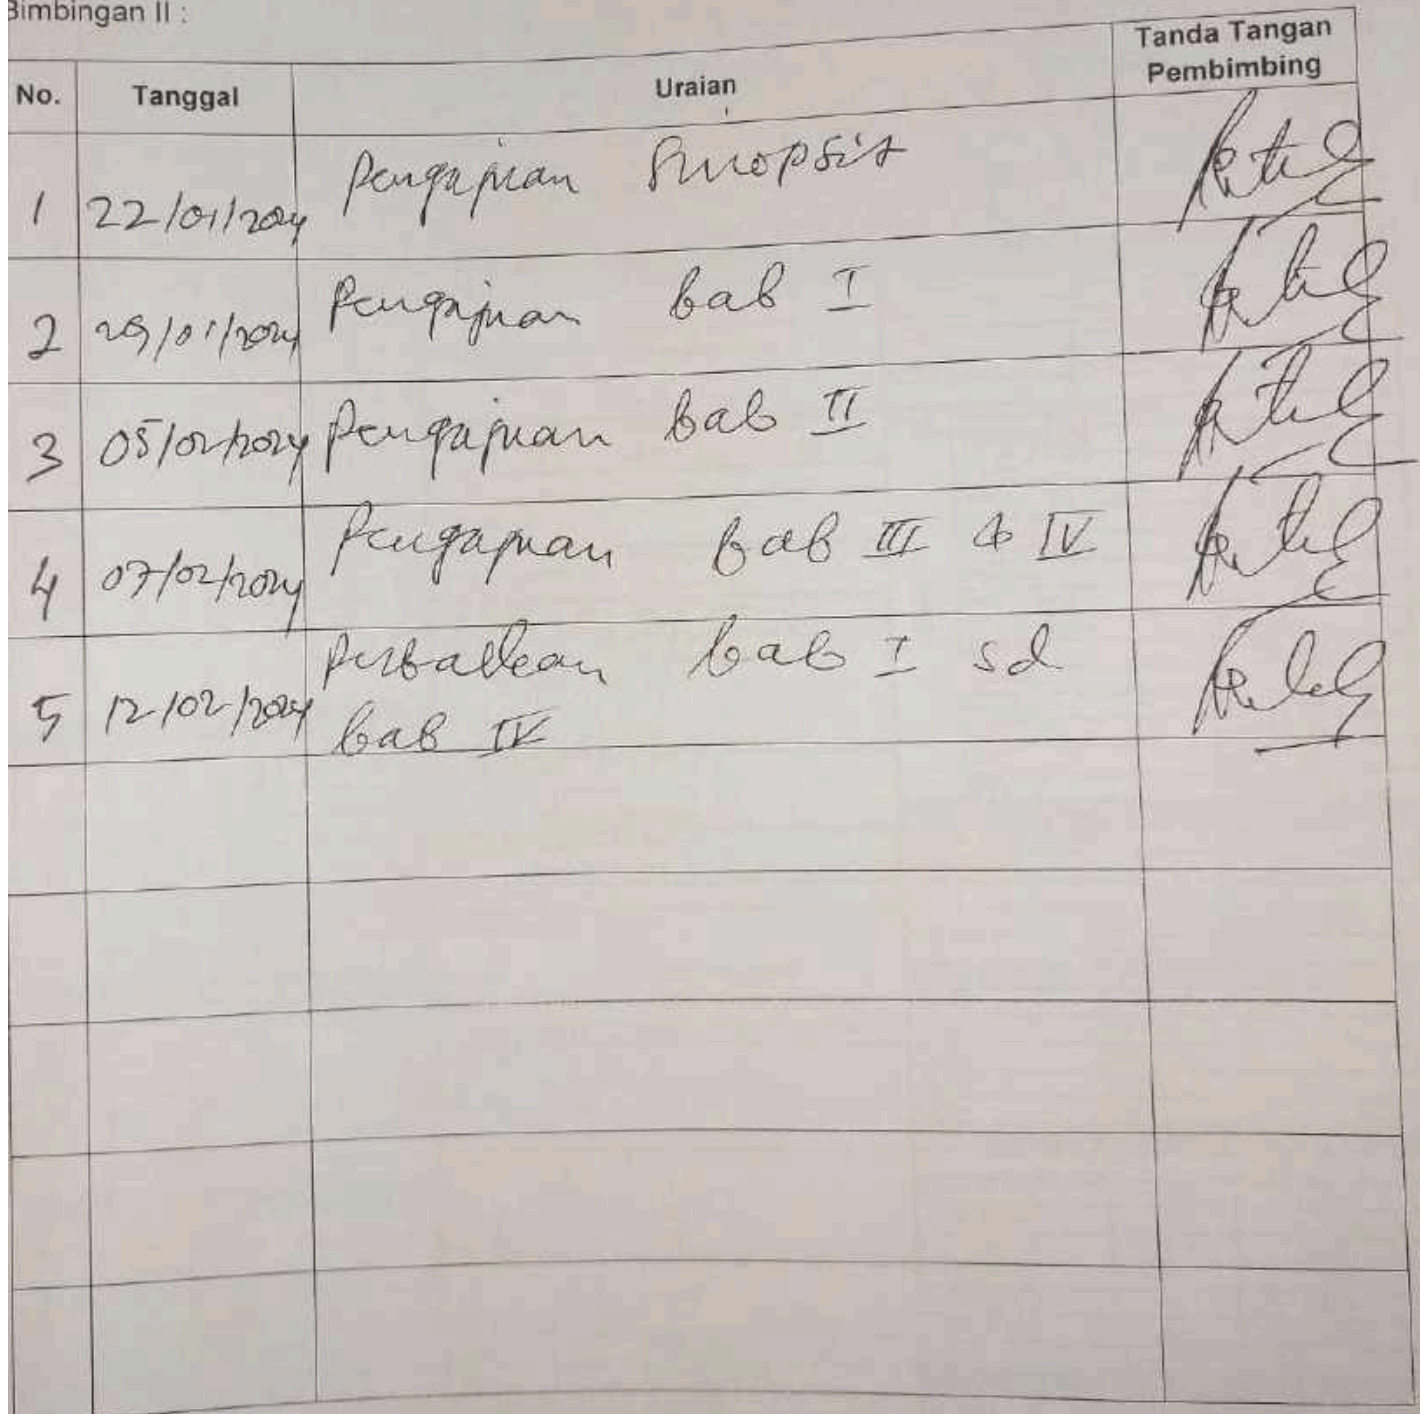 Bimbingan II :
No. Tanggal Uraian Tanda Tangan
Pembimbing
1 22/01/2024 Pengajuan Sinopsis
2 29/01/2024 Pengajuan bab I
3 05/02/2024 Pengajuan bab II
4 07/02/2024 Pengajuan bab III & IV
5 12/02/2024 Perbaikan bab I sd
bab IV